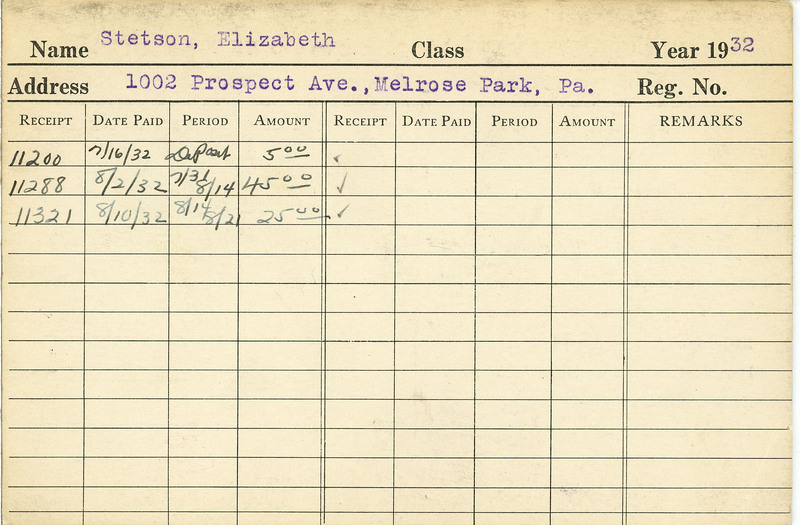 Name Stetson, Elizabeth Class Year 1932
Address 1002 Prospect Ave., Melrose Park, Pa. Reg. No.
RECEIPT DATE PAID PERIOD AMOUNT RECEIPT DATE PAID PERIOD AMOUNT REMARKS
11200 7/16/32 Deposit 5 00 ✓
11288 8/2/32 7/31 8/14 45 00 ✓
11321 8/10/32 8/14 8/21 25 00 ✓